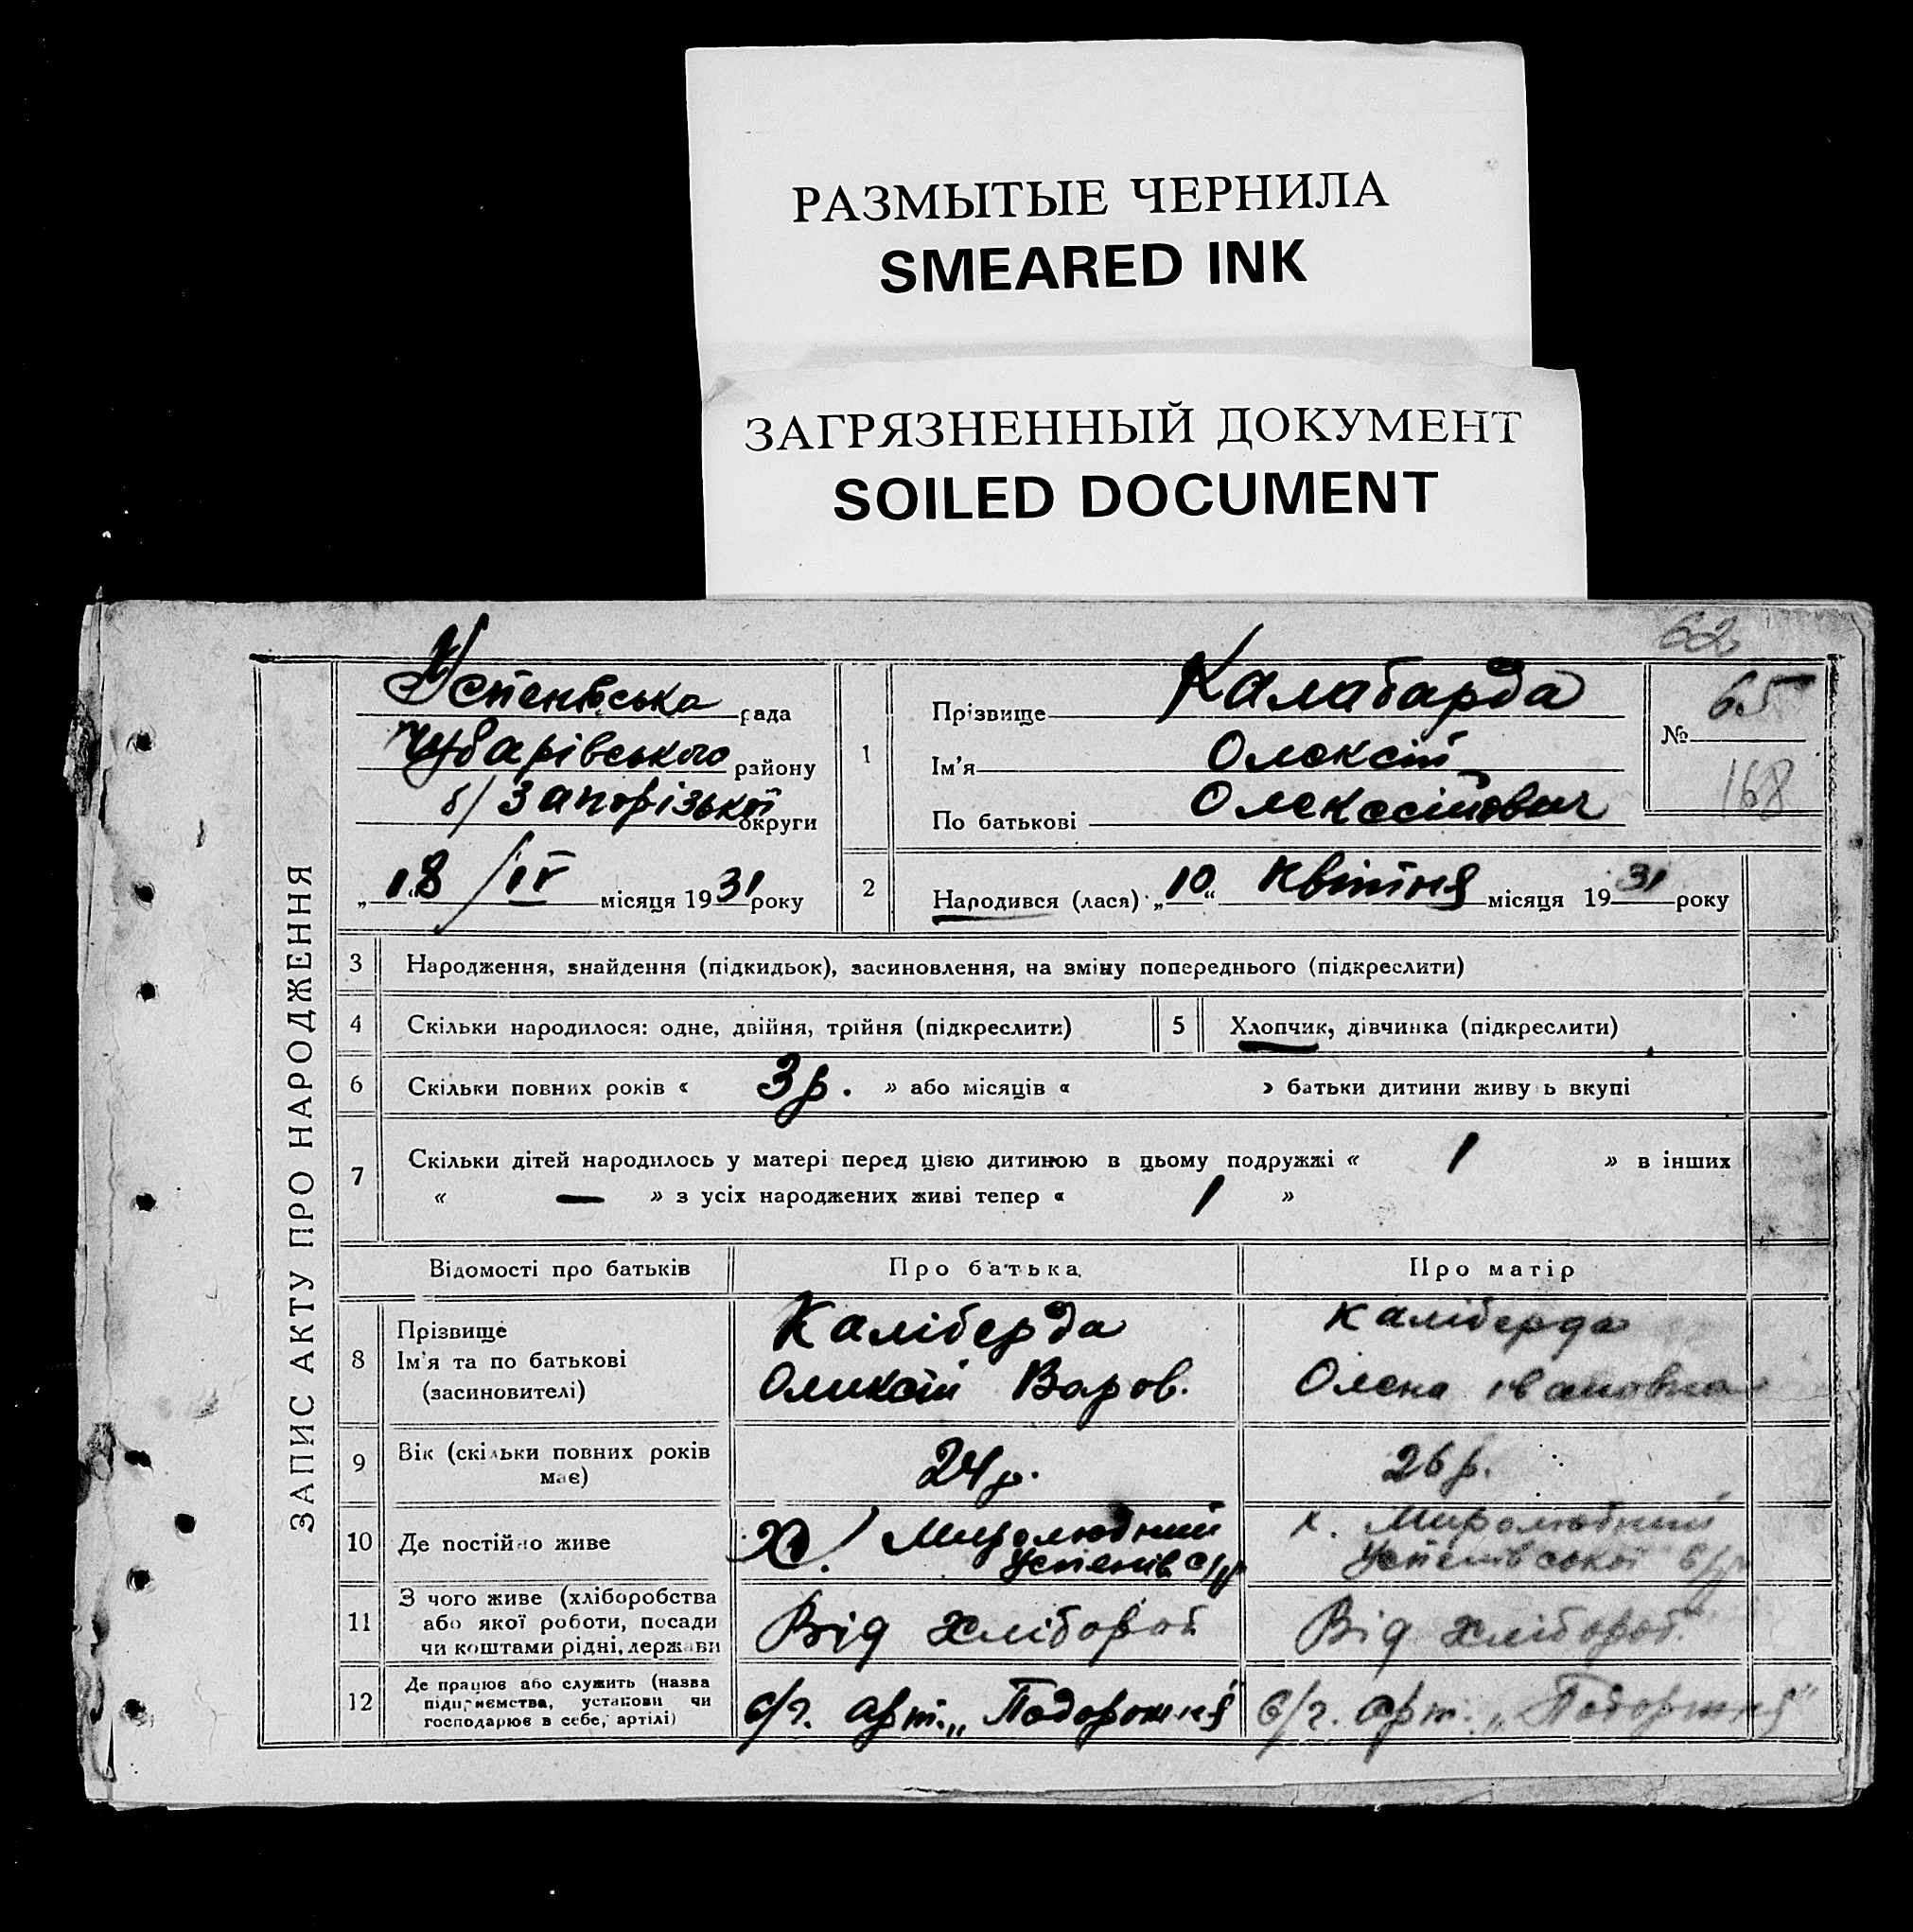 РАЗМЫТЫЕ ЧЕРНИЛА
SMEARED INK
ЗАГРЯЗНЕННЫЙ ДОКУМЕНТ
SOILED DOCUMENT
62
ЗАПИС АКТУ ПРО НАРОДЖЕННЯ
Успенівська рада
Чубарівського району
б/ Запорізької округи
„18“ /IV місяця 1931 року
1
Прізвище Калаберда
Ім'я Олексій
По батькові Олексєійович
№ 65
168
2 Народився (лася) „10“ Квітня місяця 1931 року
3 Народження, знайдення (підкидьок), засиновлення, на зміну попереднього (підкреслити)
4 Скільки народилося: одне, двійня, трійня (підкреслити) 5 Хлопчик, дівчинка (підкреслити)
6 Скільки повних років « 3 р. » або місяців « » батьки дитини живу ь вкупі
7 Скільки дітей народилось у матері перед цією дитиною в цьому подружжі « 1 » в інших
« — » з усіх народжених живі тепер « 1 »
Відомості про батьків Про батька Про матір
8 Прізвище Каліберда Каліберда
Ім'я та по батькові
(засиновителі) Оликсій Варов. Олена івановна
9 Вік (скільки повних років має) 24 р. 26 р.
10 Де постійно живе Х. Миролюбний х. Миролюбний
Успенів. с/р Успенівської с/р
11 З чого живе (хліборобства
або якої роботи, посади
чи коштами рідні, держави Від хлібороб. Від хлібороб.
12 Де працює або служить (назва
підприємства, установи чи
господарює в себе, артілі) с/г. арт. „Подорожня“ с/г. арт. „Подорожня“